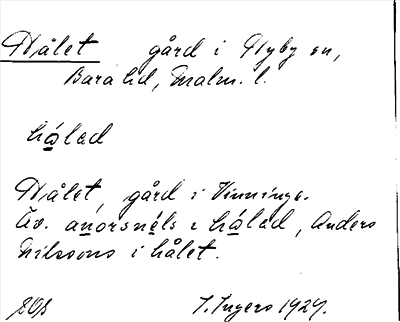 Hålet gård i Hyby sn,
Bara hd, Malm. l.
hålad
Hålet, gård i Vinninge.
Äv. anorsnéls i hålad, Anders
Nilssons i hålet.
I. Ingers 1929.